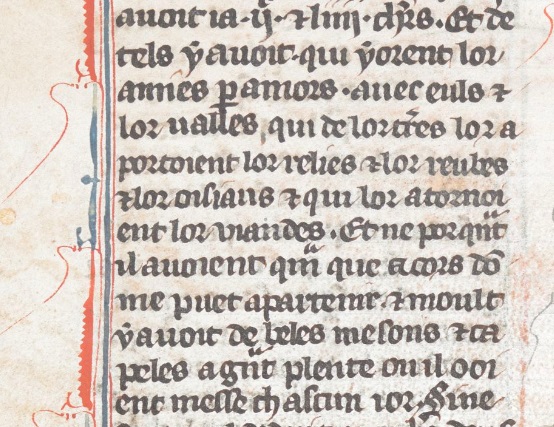 auoit ia .ij. ⁊ liiij. chĩrs. Et de
tels ẏ auoit. qui ẏ orent lor
amies ꝑ amors. auec euls ⁊
lor ualles qui de lor tr̃es lor a
portoient lor relies ⁊ lor reubes
⁊ lor oisiaus ⁊ qui lor atornoi
ent lor uiandes. Et ne porqͣnt
il auoient qͣnq̃ que a cors dõ
me puet apartenir. ⁊ moult
ẏ auoit de beles mesons ⁊ ca
peles a gͣnt plente ou il ooi
ent messe chascun ior. Si ne